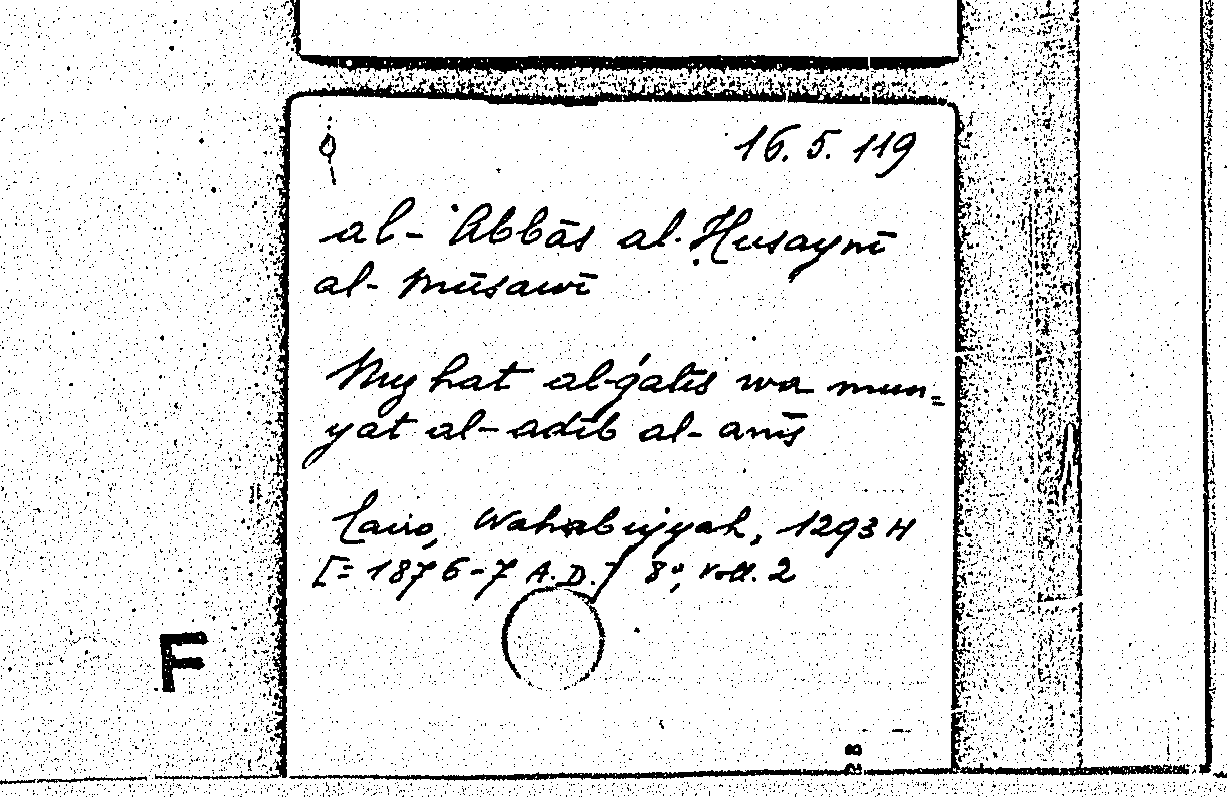 16. 5. 119
al-ʿAbbās al-Ḥusaynī
al-Mūsawī
Nuzhat al-ǵalīs wa mun=
yat al-adīb al-anīs
Cairo, Wahabiyyah, 1293 H
[= 1876-7 A.D.] 8°, voll. 2
F